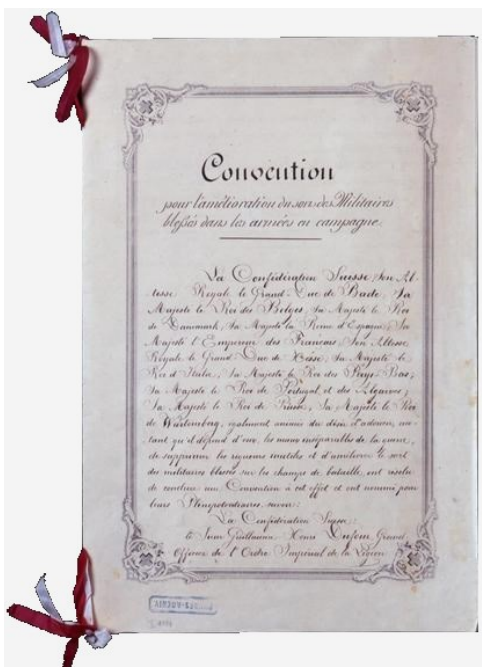 Convention
pour l'amélioration du sort des Militaires
blessés dans les armées en campagne.
La Confédération Suisse, Son Al-
tesse Royale le Grand-Duc de Bade, Sa
Majesté le Roi des Belges, Sa Majesté le Roi
de Danemark, Sa Majesté la Reine d'Espagne, Sa
Majesté l'Empereur des Français, Son Altesse
Royale le Grand Duc de Hesse, Sa Majesté le
Roi d'Italie, Sa Majesté le Roi des Pays-Bas;
Sa Majesté le Roi de Portugal et des Algarves;
Sa Majesté le Roi de Prusse, Sa Majesté le Roi
de Würtemberg, également animés du désir d'adoucir, au-
tant qu'il dépend d'eux, les maux inséparables de la guerre,
de supprimer les rigueurs inutiles et d'améliorer le sort
des militaires blessés sur les champs de bataille, ont résolu
de conclure une Convention à cet effet et ont nommé pour
leurs Plénipotentiaires, savoir:
La Confédération Suisse:
le Sieur Guillaume Henri Dufour Grand
Officier de l'Ordre Impérial de la Légion